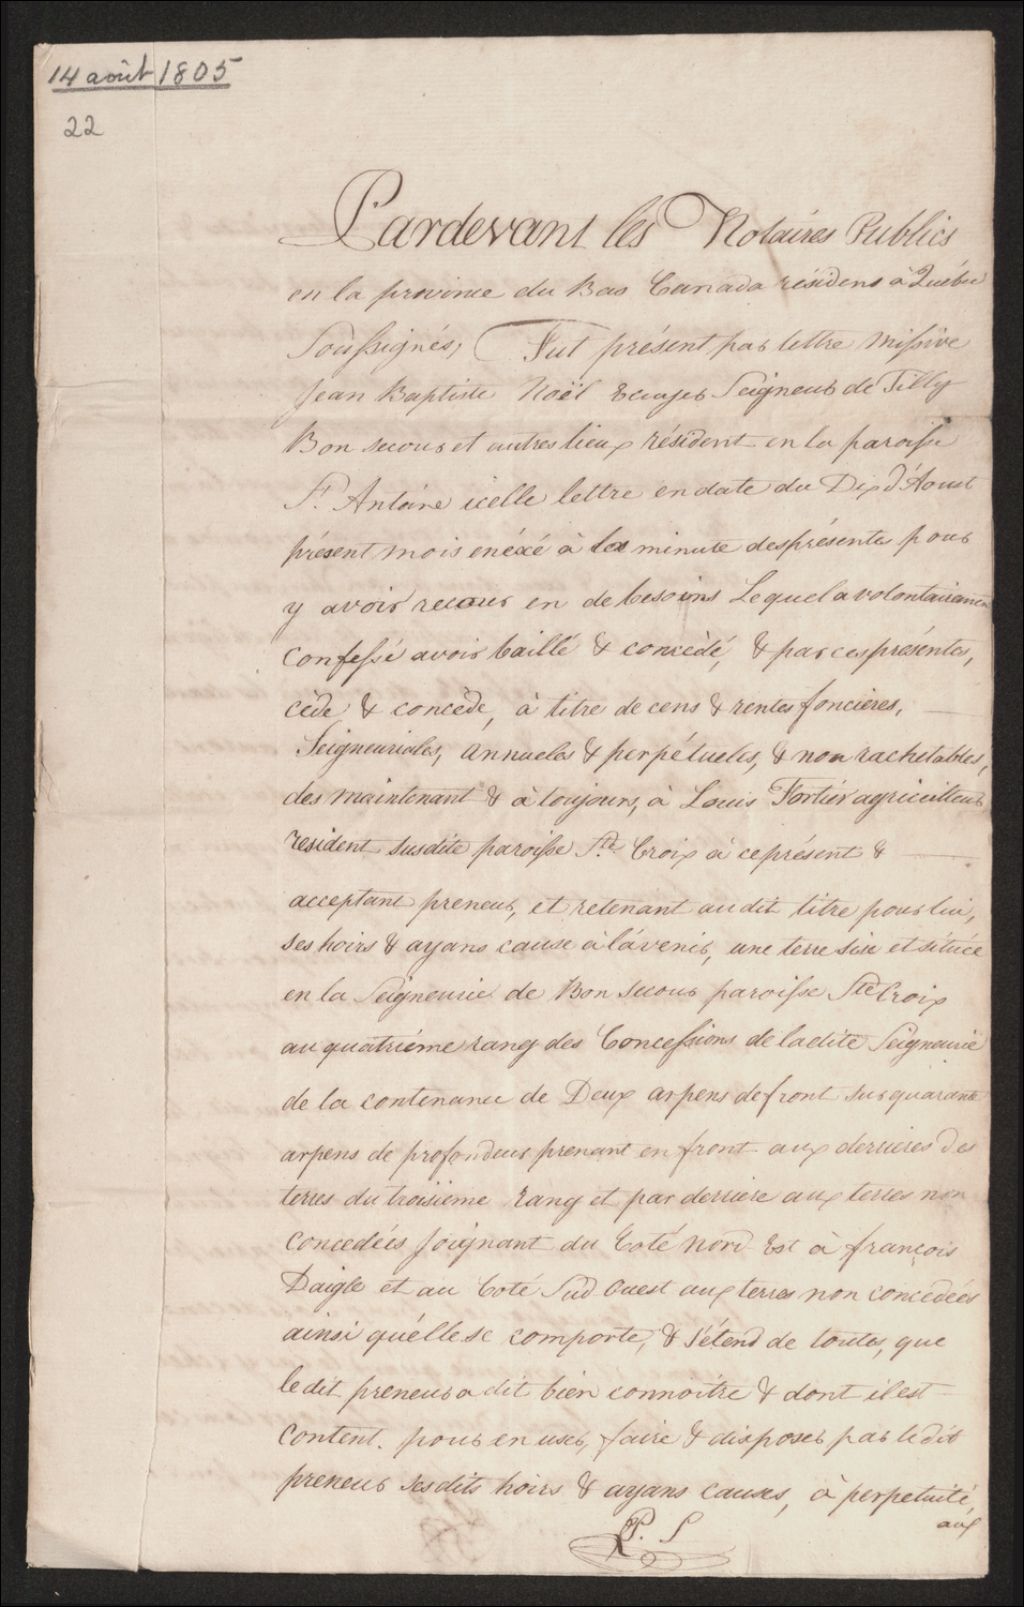 14 août 1805
22
Pardevant les Notaires Publics
en la province du Bas Canada résidens à Québec
Soussignés, Fut présent par lettre missive
Jean Baptiste Noël Ecuyer Seigneur de Tilly
Bon secour et autres lieux résident en la paroisse
St. Antoine icelle lettre en date du Dix d'Aoust
présent mois enéxé à la minute des présentes pour
y avoir recour en de besoins Lequel a volontairement
confessé avoir baillé & concédé, & par ces présentes,
cède & concède, à titre de cens & rentes foncières,
Seigneuriales, annueles & perpétueles, & non rachetables,
des maintenant & à toujours, à Louis Fortier agriculteur
resident susdite paroisse Ste. Croix à ce présent &
acceptant preneur, et retenant au dit titre pour lui,
ses hoirs & ayans cause à l'avenir, une terre sise et située
en la Seigneurie de Bon Secour paroisse Ste Croix
au quatrième rang des Concessions de ladite Seigneurie
de la contenance de Deux arpens de front sur quarante
arpens de profondeur prenant en front aux derrieres des
terres du troisième rang et par derriere aux terres non
concedées joignant du Coté Nord Est à françois
Daigle et au Coté Sud Ouest aux terres non concedées
ainsi qu'elle se comporte, & s'étend de toutes, que
le dit preneur a dit bien connoitre & dont il est
content. pour en user, faire & disposer par le dit
preneur ses dits hoirs & ayans causes, à perpetuité,
aux
P. S